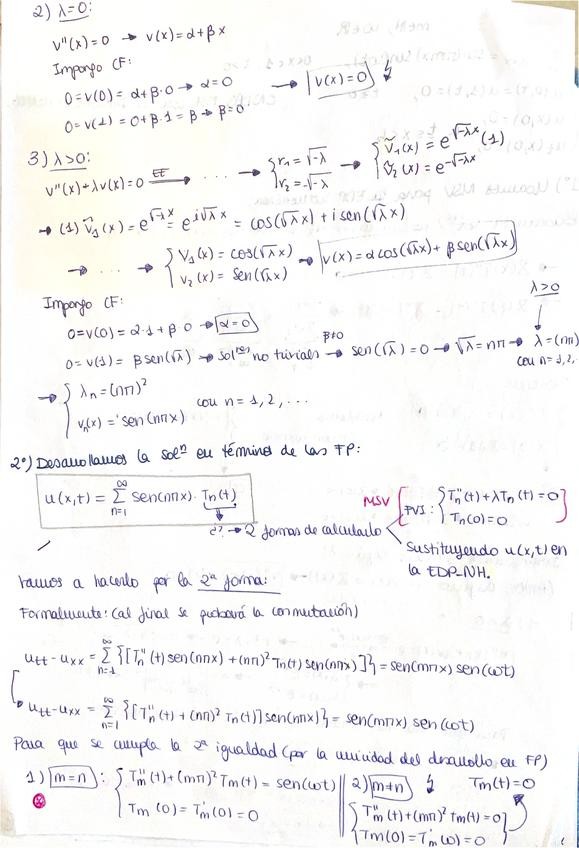 2) λ=0:
v''(x)=0 → v(x)=α+βx
Impongo CF:
0=v(0)=α+β·0 → α=0 → v(x)=0
0=v(1)=0+β·1=β → β=0
3) λ>0:
v''(x)+λv(x)=0 → ... → { r₁=√-λ → { ṽ₁(x)=e^{√-λ x} (1)
r₂=-√-λ ṽ₂(x)=e^{-√-λ x}
→ (1) ṽ₁(x)=e^{√-λ x}=e^{i√λ x}=cos(√λx)+i sen(√λx)
→ ... → { v₁(x)=cos(√λx) → v(x)=αcos(√λx)+βsen(√λx)
v₂(x)=sen(√λx)
Impongo CF: λ>0
0=v(0)=α·1+β·0 → α=0
0=v(1)=βsen(√λ) → solⁿᵉˢ no triviales →^{β≠0} sen(√λ)=0 → √λ=nπ → λ=(nπ)
con n=1,2,..
→ { λₙ=(nπ)²
vₙ(x)=sen(nπx) con n=1,2,...
2º) Desarrollamos la solⁿ en términos de las FP:
u(x,t)=∑_{n=1}^{∞} sen(nπx)·Tₙ(t) MSV [PVI: { Tₙ''(t)+λTₙ(t)=0
Tₙ(0)=0
¿? → 2 formas de calcularlo
Sustituyendo u(x,t) en
la EDP-NH.
Vamos a hacerlo por la 2ª forma:
Formalmente: (al final se probará la conmutación)
u_tt-u_xx=∑_{n=1}^{∞} {[Tₙ''(t)sen(nπx)+(nπ)²Tₙ(t)sen(nπx)]}=sen(mπx)sen(ωt)
u_tt-u_xx=∑_{n=1}^{∞} {[Tₙ''(t)+(nπ)²Tₙ(t)]sen(nπx)}=sen(mπx)sen(ωt)
Para que se cumpla la 2ª igualdad (por la unicidad del desarrollo en FP)
1) m=n: { Tₘ''(t)+(mπ)²Tₘ(t)=sen(ωt) || 2) m≠n Tₘ(t)=0
Tₘ(0)=Tₘ'(0)=0
{ Tₘ''(t)+(mπ)²Tₘ(t)=0
Tₘ(0)=Tₘ'(0)=0